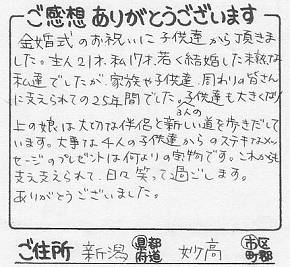 ご感想ありがとうございます
金婚式のお祝いに子供達から頂きま
した。主人21才、私17才、若く結婚した未熟な
私達でしたが、家族や子供達、周りの皆さん
に支えられての25年間でした。子供達も大きくなり
3人の
上の娘は大切な伴侶と新しい道を歩きだして
います。大事な4人の子供達からのステキなメッ
セージのプレゼントは何よりの宝物です。これからも
支え支えられて、日々笑って過ごします。
ありがとうございました。
ご住所 新潟 都道府県 妙高 市区町郡